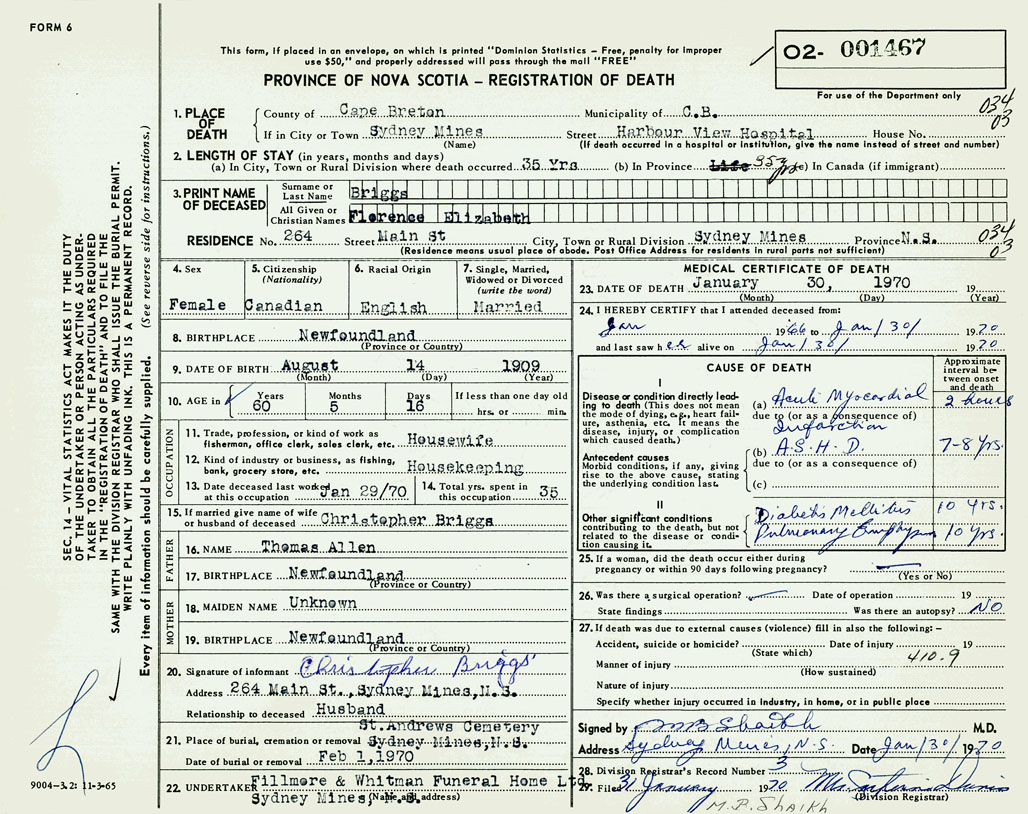 FORM 6
This form, if placed in an envelope, on which is printed "Dominion Statistics – Free, penalty for improper
use $50," and properly addressed will pass through the mail "FREE"
PROVINCE OF NOVA SCOTIA – REGISTRATION OF DEATH
02- 001467
For use of the Department only
034
03
1. PLACE OF DEATH
County of Cape Breton Municipality of C.B.
If in City or Town Sydney Mines Street Harbour View Hospital House No.
(Name) (If death occurred in a hospital or institution, give the name instead of street and number)
2. LENGTH OF STAY (in years, months and days)
(a) In City, Town or Rural Division where death occurred 35 Yrs (b) In Province Life 35 yrs (c) In Canada (if immigrant)
3. PRINT NAME OF DECEASED
Surname or Last Name Briggs
All Given or Christian Names Florence Elizabeth
RESIDENCE No. 264 Street Main St City, Town or Rural Division Sydney Mines Province N.S.
(Residence means usual place of abode. Post Office Address for residents in rural parts not sufficient)
034
03
4. Sex Female
5. Citizenship (Nationality) Canadian
6. Racial Origin English
7. Single, Married, Widowed or Divorced (write the word) Married
8. BIRTHPLACE Newfoundland
(Province or Country)
9. DATE OF BIRTH August 14 1909
(Month) (Day) (Year)
10. AGE in Years 60 Months 5 Days 16 If less than one day old hrs. or min.
OCCUPATION
11. Trade, profession, or kind of work as fisherman, office clerk, sales clerk, etc. Housewife
12. Kind of industry or business, as fishing, bank, grocery store, etc. Housekeeping
13. Date deceased last worked at this occupation Jan 29/70
14. Total yrs. spent in this occupation 35
15. If married give name of wife or husband of deceased Christopher Briggs
FATHER
16. NAME Thomas Allen
17. BIRTHPLACE Newfoundland
(Province or Country)
MOTHER
18. MAIDEN NAME Unknown
19. BIRTHPLACE Newfoundland
(Province or Country)
20. Signature of informant Christopher Briggs
Address 264 Main St., Sydney Mines, N.S.
Relationship to deceased Husband
St.Andrews Cemetery
21. Place of burial, cremation or removal Sydney Mines, N.S.
Date of burial or removal Feb 1, 1970
22. UNDERTAKER Fillmore & Whitman Funeral Home Ltd.
Sydney Mines, N.S.
(Name and address)
MEDICAL CERTIFICATE OF DEATH
23. DATE OF DEATH January 30, 1970 19
(Month) (Day) (Year)
24. I HEREBY CERTIFY that I attended deceased from:
Jan 1966 to Jan/30/ 1970
and last saw her alive on Jan/30/ 1970
CAUSE OF DEATH
Approximate interval between onset and death
I
Disease or condition directly leading to death (This does not mean the mode of dying, e.g., heart failure, asthenia, etc. It means the disease, injury, or complication which caused death.)
(a) Acute Myocardial 2 hours
due to (or as a consequence of)
Infarction
Antecedent causes
Morbid conditions, if any, giving rise to the above cause, stating the underlying condition last.
(b) A.S.H.D. 7-8 Yrs.
due to (or as a consequence of)
(c)
II
Other significant conditions contributing to the death, but not related to the disease or condition causing it.
Diabetis Mellitis 10 Yrs.
Pulmonary Emphysem 10 Yrs.
25. If a woman, did the death occur either during pregnancy or within 90 days following pregnancy?
(Yes or No)
26. Was there a surgical operation? Date of operation 19
State findings Was there an autopsy? NO
27. If death was due to external causes (violence) fill in also the following: –
Accident, suicide or homicide? Date of injury 19
(State which)
410.9
Manner of injury
(How sustained)
Nature of injury
Specify whether injury occurred in industry, in home, or in public place
Signed by MB Shaikh M.D.
Address Sydney Mines, N.S. Date Jan/30/ 1970
28. Division Registrar's Record Number 3
29. Filed 31 January 1970 Mrs.
(Division Registrar)
M.B. SHAIKH
SEC. 14 – VITAL STATISTICS ACT MAKES IT THE DUTY
OF THE UNDERTAKER OR PERSON ACTING AS UNDER-
TAKER TO OBTAIN ALL THE PARTICULARS REQUIRED
IN THE "REGISTRATION OF DEATH" AND TO FILE THE
SAME WITH THE DIVISION REGISTRAR WHO SHALL ISSUE THE BURIAL PERMIT.
WRITE PLAINLY WITH UNFADING INK. THIS IS A PERMANENT RECORD.
Every item of information should be carefully supplied. (See reverse side for instructions.)
9004–3.2: 11-3-65